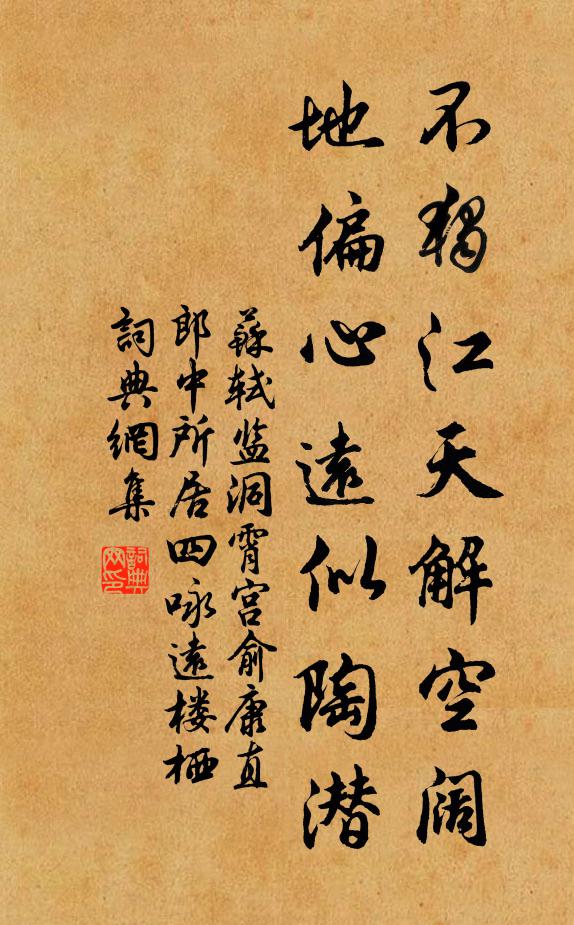 不獨江天解空阔
地偏心遠似陶潜
蘇轼监洞霄宫俞康直
郎中所居四咏遠楼栖
詞典網集
詞典网印